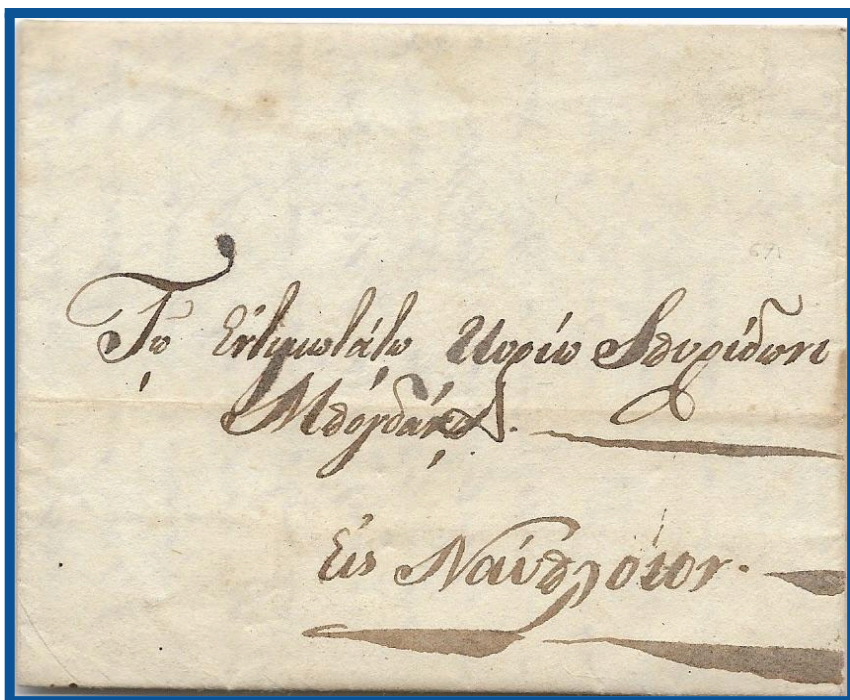 Τῷ Ἐντιμωτάτῳ Κυρίῳ Σπυρίδωνι
Μπογδάνῳ.
Εἰς Ναύπλοιον.